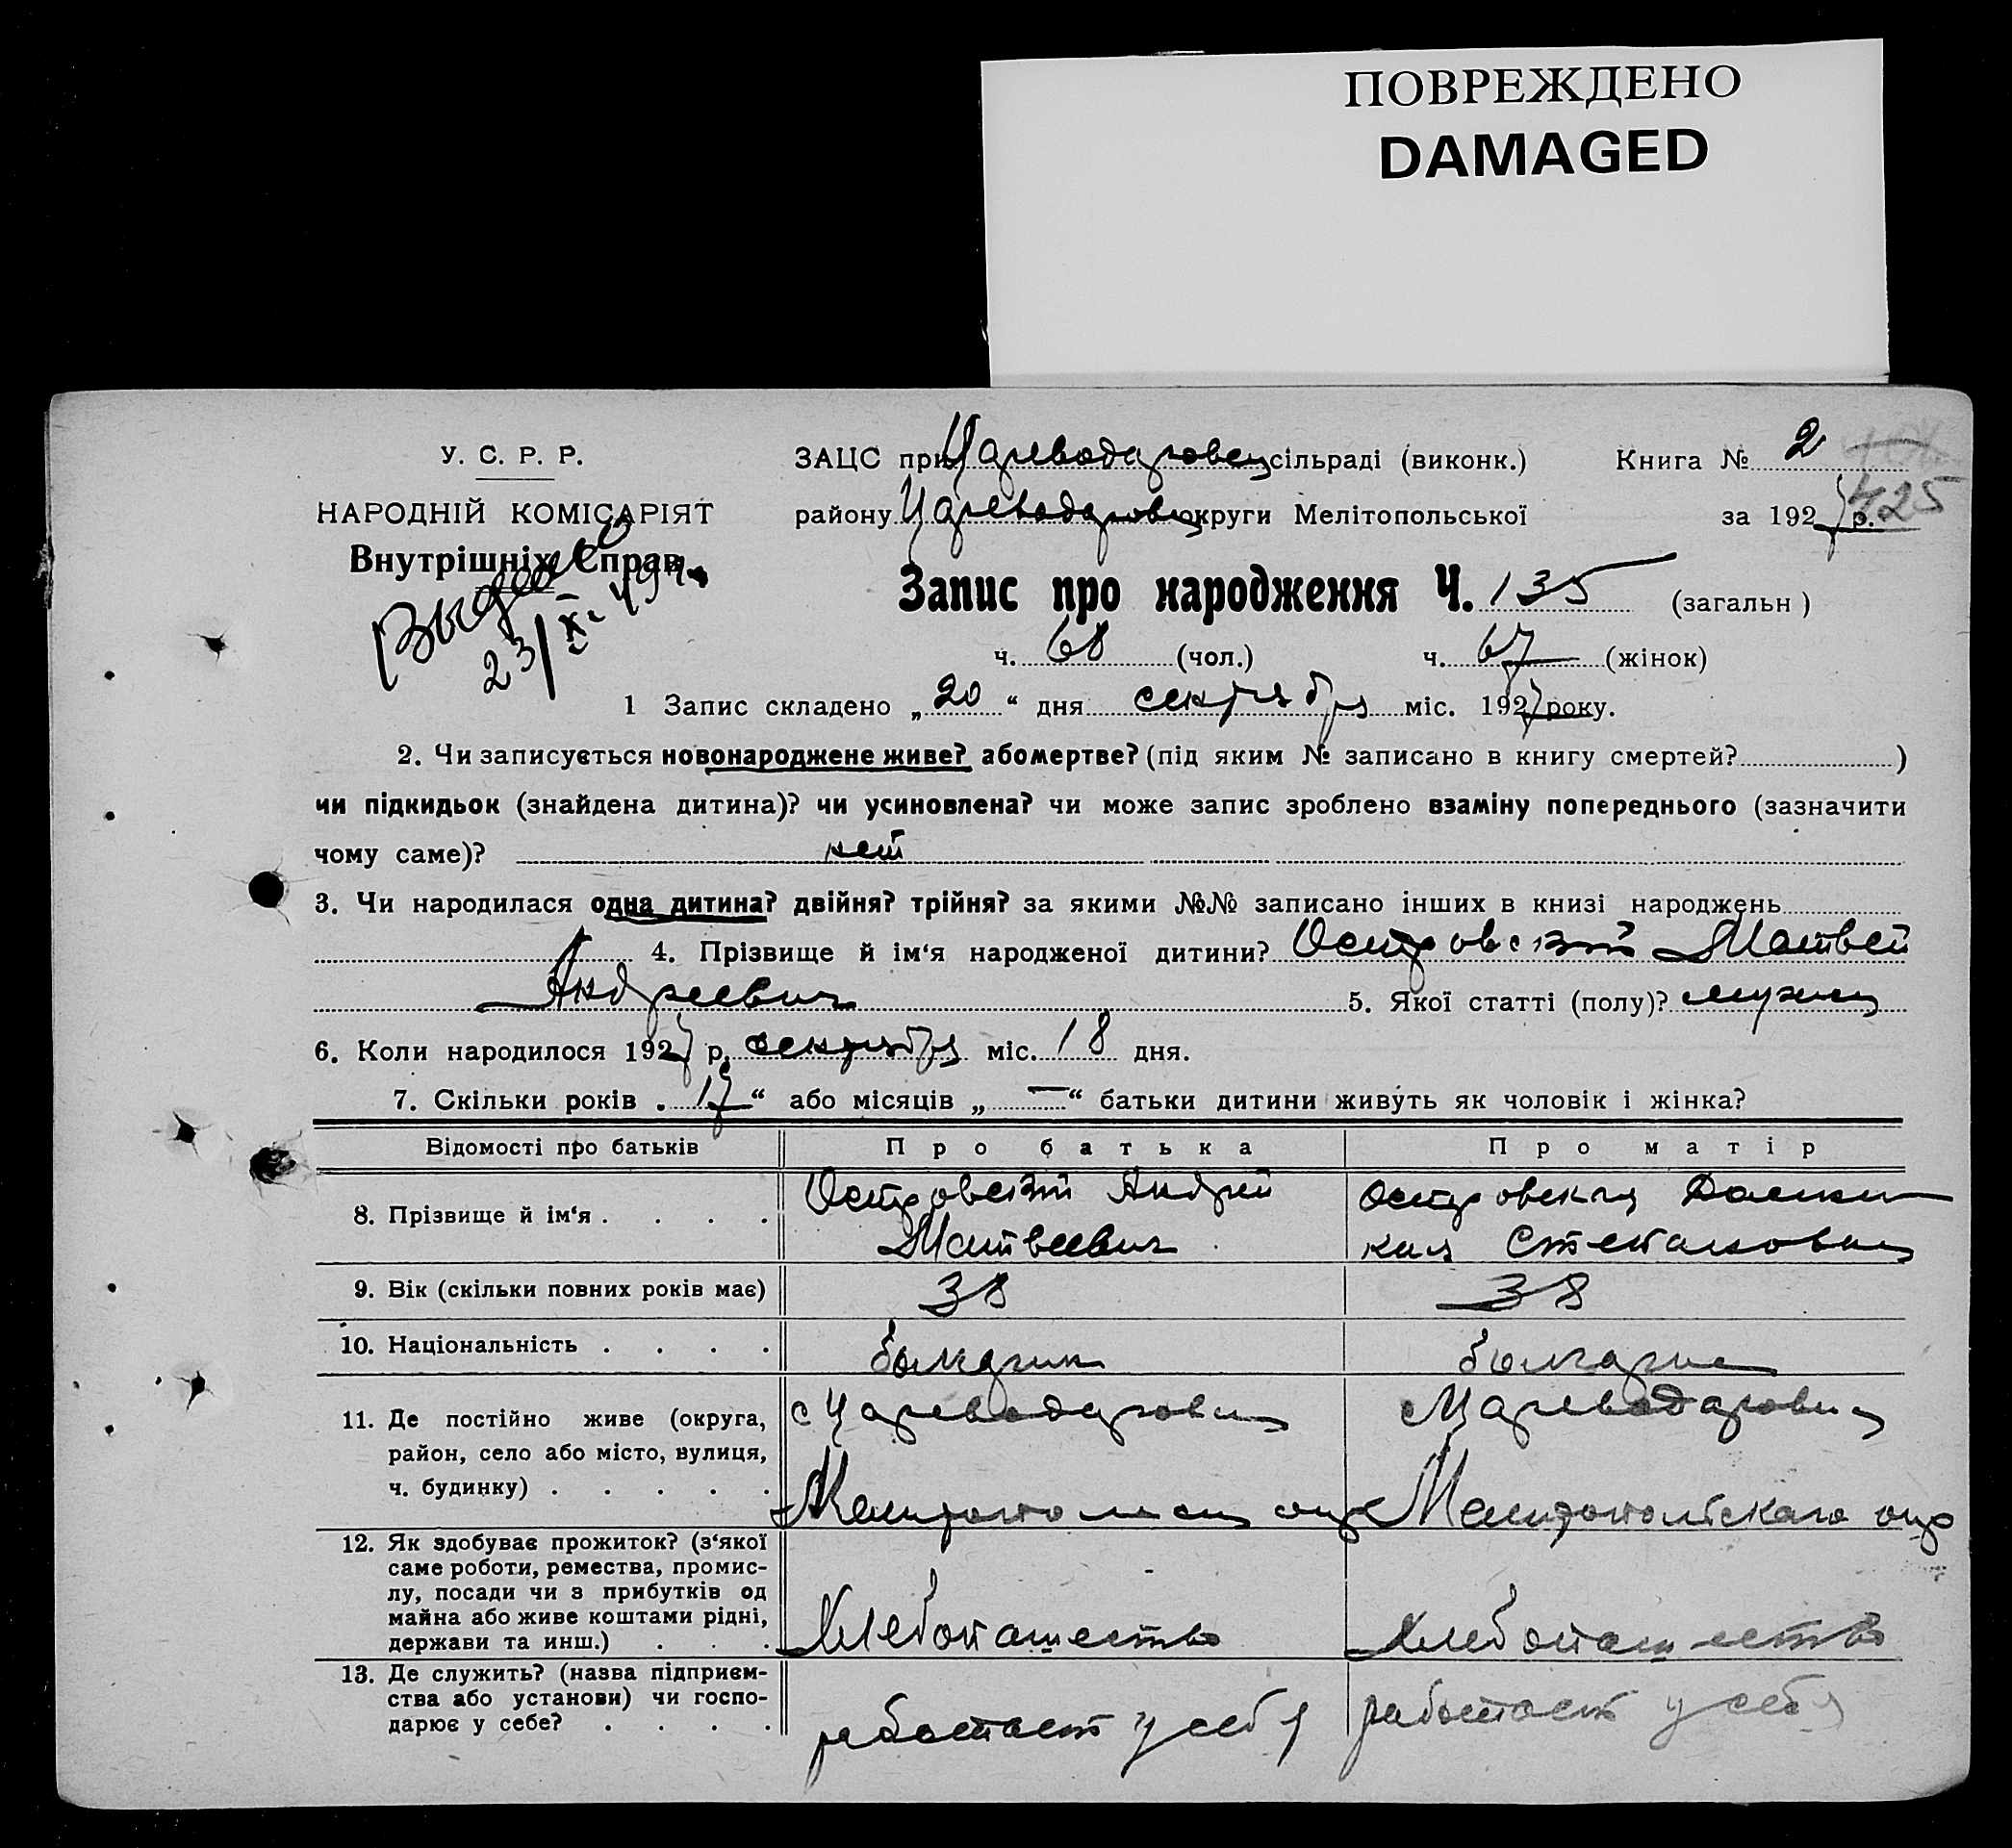 ПОВРЕЖДЕНО
DAMAGED
У. С. Р. Р.
НАРОДНІЙ КОМІСАРІЯТ
Внутрішніх Справ
Выдано
23/XI
ЗАЦС при Цареводаровец сільраді (виконк.) Книга № 2
425
району Цареводаровец округи Мелітопольської за 1927 р.
Запис про народження Ч. 135 (загальн)
ч. 68 (чол.) ч. 67 (жінок)
1 Запис складено „20“ дня сентября міс. 1927 року.
2. Чи записується новонароджене живе? або мертве? (під яким № записано в книгу смертей? )
чи підкидьок (знайдена дитина)? чи усиновлена? чи може запис зроблено взаміну попереднього (зазначити
чому саме)? нет
3. Чи народилася одна дитина? двійня? трійня? за якими №№ записано інших в книзі народжень
4. Прізвище й ім‘я народженої дитини? Островский Матвей
Андреевич 5. Якої статті (полу)?
6. Коли народилося 1927 р. сентября міс. 18 дня.
7. Скільки років „17“ або місяців „—“ батьки дитини живуть як чоловік і жінка?
Відомості про батьків Про батька Про матір
8. Прізвище й ім‘я . . . . Островский Андрей Островская
Матвеевич Степановна
9. Вік (скільки повних років має) 38 38
10. Національність . . . . болгарин болгарка
11. Де постійно живе (округа, с Цареводаровка с Цареводаровка
район, село або місто, вулиця,
ч. будинку) . . . . . Мелитопольск окр Мелитопольскаго окр
12. Як здобуває прожиток? (з‘якої
саме роботи, ремества, промис-
лу, посади чи з прибутків од
майна або живе коштами рідні,
держави та инш.) . . . Хлебопашество хлебопашество
13. Де служить? (назва підприєм-
ства або установи) чи госпо-
дарює у себе? . . . . работает у себя работает у себя